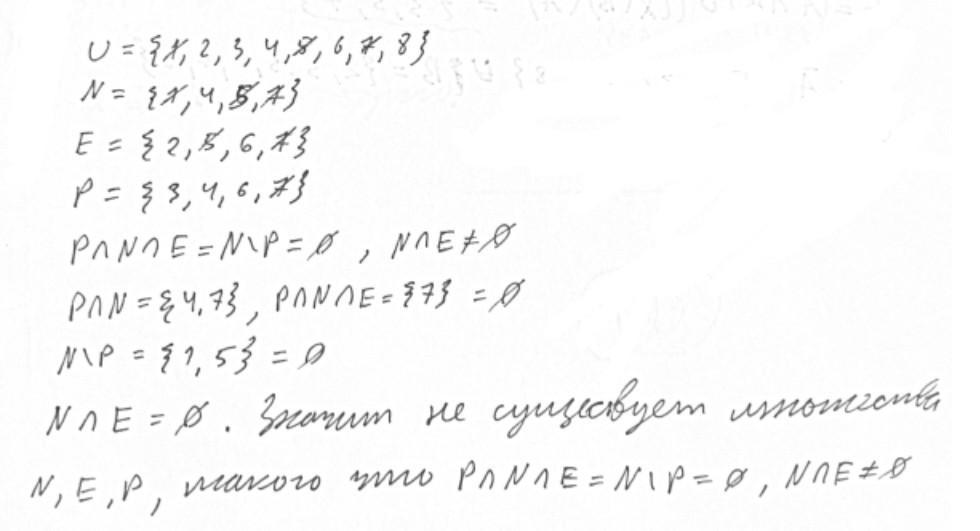 U = {1, 2, 3, 4, 5, 6, 7, 8}
N = {1, 4, 5, 7}
E = {2, 5, 6, 7}
P = {3, 4, 6, 7}
P∩N∩E = N\P = ∅ , N∩E ≠ ∅
P∩N = {4,7}, P∩N∩E = {7} = ∅
N\P = {1, 5} = ∅
N∩E = ∅. Значит не существует множества
N, E, P, такого что P∩N∩E = N\P = ∅, N∩E ≠ ∅